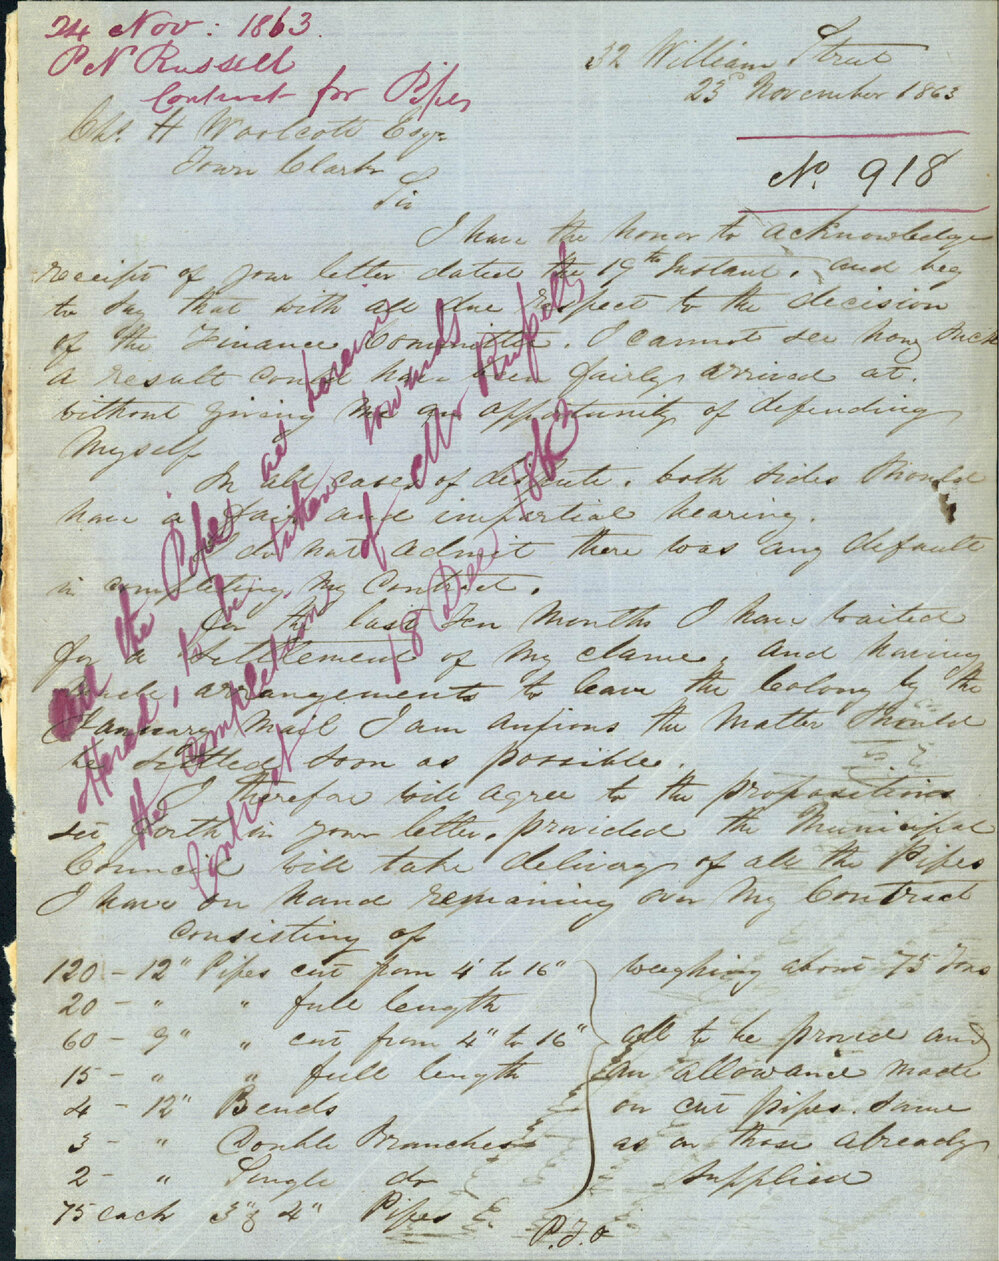 24 Nov: 1863.
P N Russell
Contract for Pipes
32 William Street
23rd November 1863
Chs. H Woolcott Esqr
Town Clerk
No. 918
Sir
I have the honor to acknowledge
receipt of your letter dated the 19th Instant, and beg
to say that with all due respect to the decision
of the Finance Committee, I cannot see how such
a result could have been fairly arrived at.
without giving me an opportunity of defending
Myself
In all cases of dispute, both sides should
have a fair and impartial hearing.
I do not admit there was any default
in completing my Contract.
For the last Ten Months I have waited
for a Settlement of my claim, and having
made arrangements to leave the Colony by the
January Mail I am anxious the matter should
be settled soon as possible.
I therefore will agree to the propositions
set forth in your letter, provided the Municipal
Council will take delivery of all the Pipes
I have on hand remaining over my Contract
consisting of
120 - 12" Pipes cut from 4" to 16" weighing about 75 Tons
20 - " " full length
60 - 9" " cut from 4" to 16" all to be proved and
15 - " " full length an allowance made
4 - 12" Bends on cut pipes same
3 - " Double Branches as on those already
2 - " Single do supplied
75 each 3" & 4" Pipes
P.T.O
All the Pipes as herein
Stated, to be taken towards
the completion of Mr Russell's
Contract 18 Dec 1863